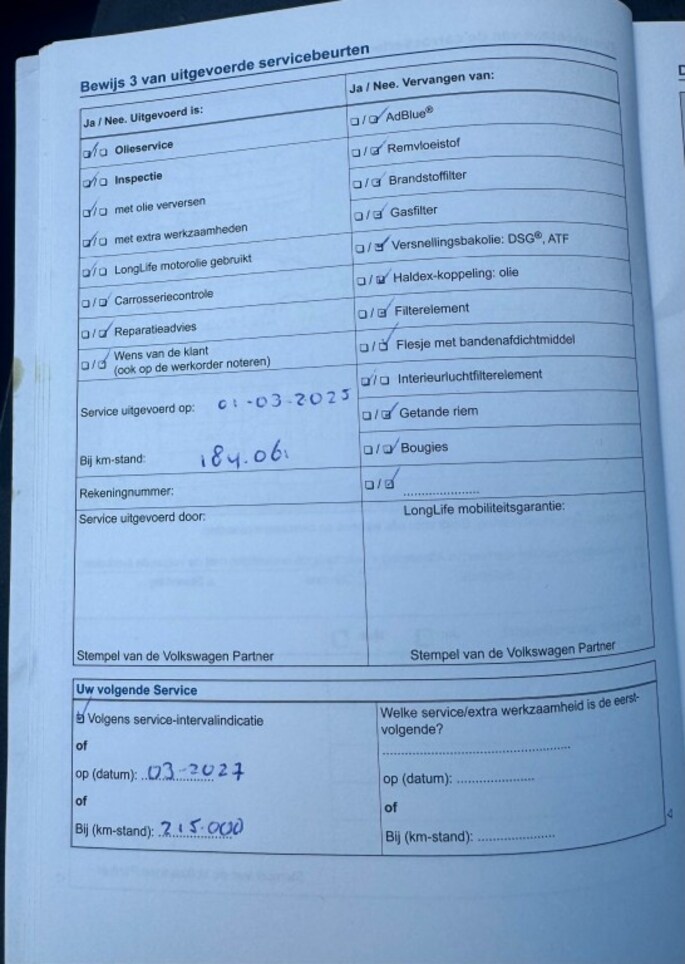 Bewijs 3 van uitgevoerde servicebeurten
Ja / Nee. Uitgevoerd is:
Olieservice
Inspectie
met olie verversen
met extra werkzaamheden
LongLife motorolie gebruikt
Carrosseriecontrole
Reparatieadvies
Wens van de klant
(ook op de werkorder noteren)
Service uitgevoerd op: 01-03-2025
Bij km-stand: 184.061
Rekeningnummer:
Service uitgevoerd door:
Stempel van de Volkswagen Partner
Ja / Nee. Vervangen van:
AdBlue®
Remvloeistof
Brandstoffilter
Gasfilter
Versnellingsbakolie: DSG®, ATF
Haldex-koppeling: olie
Filterelement
Flesje met bandenafdichtmiddel
Interieurluchtfilterelement
Getande riem
Bougies
LongLife mobiliteitsgarantie:
Stempel van de Volkswagen Partner
Uw volgende Service
Volgens service-intervalindicatie
of
op (datum): 03-2027
of
Bij (km-stand): 215.000
Welke service/extra werkzaamheid is de eerst-
volgende?
op (datum):
of
Bij (km-stand):